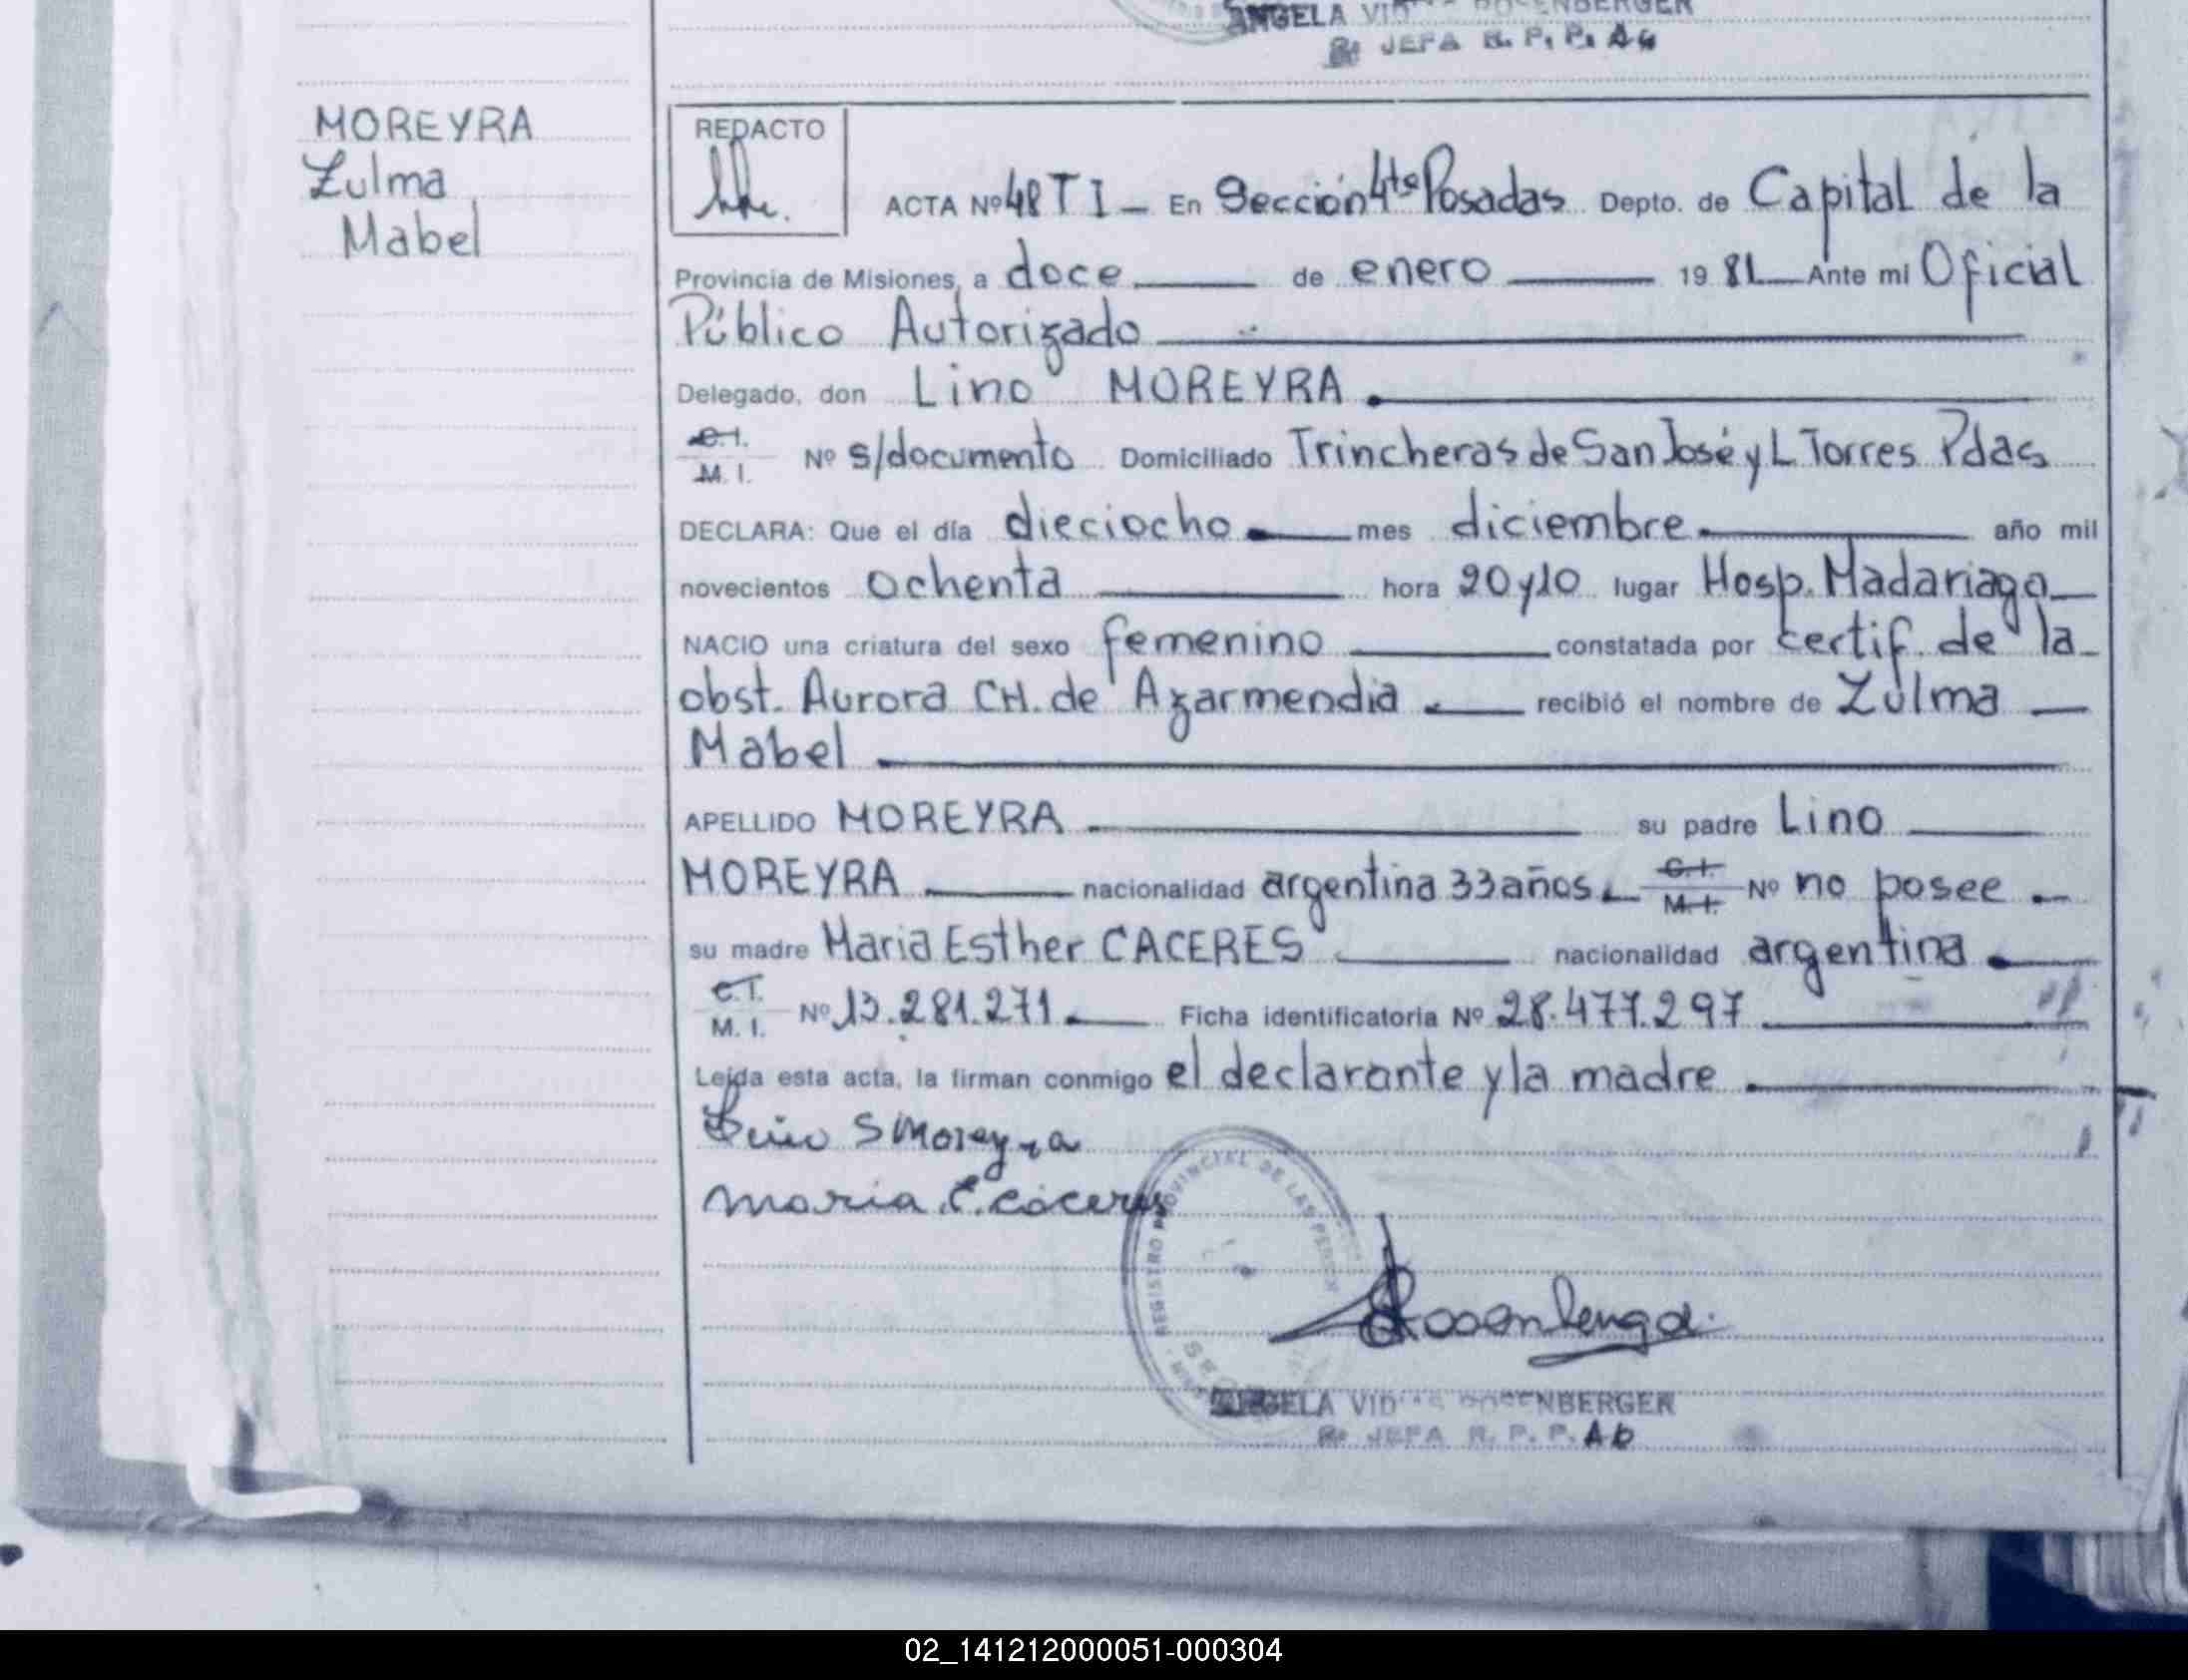 ANGELA VID ROSENBERGER
JEFA R. P. P.
MOREYRA
Zulma
Mabel
REDACTO
ACTA Nº 48 T I — En Sección 4ta Posadas Depto. de Capital de la
Provincia de Misiones, a doce de enero 1981 Ante mi Oficial
Público Autorizado
Delegado, don Lino MOREYRA.
C.I.
M. I. Nº s/documento Domiciliado Trincheras de San José y L Torres Pdas
DECLARA: Que el día dieciocho mes diciembre año mil
novecientos ochenta hora 20 y 10 lugar Hosp. Madariaga
NACIO una criatura del sexo femenino constatada por certif. de la
obst. Aurora CH. de Azarmendia recibió el nombre de Zulma
Mabel
APELLIDO MOREYRA su padre Lino
MOREYRA nacionalidad argentina 33 años C.I.
M.I. Nº no posee
su madre Maria Esther CACERES nacionalidad argentina
C.I.
M. I. Nº 13.281.271 Ficha identificatoria Nº 28.477.297
Leída esta acta, la firman conmigo el declarante y la madre
Lino S Moreyra
Maria E. Caceres
REGISTRO PROVINCIAL DE LAS PERSO
ANGELA VID ROSENBERGER
JEFA R. P. P.
02_141212000051-000304